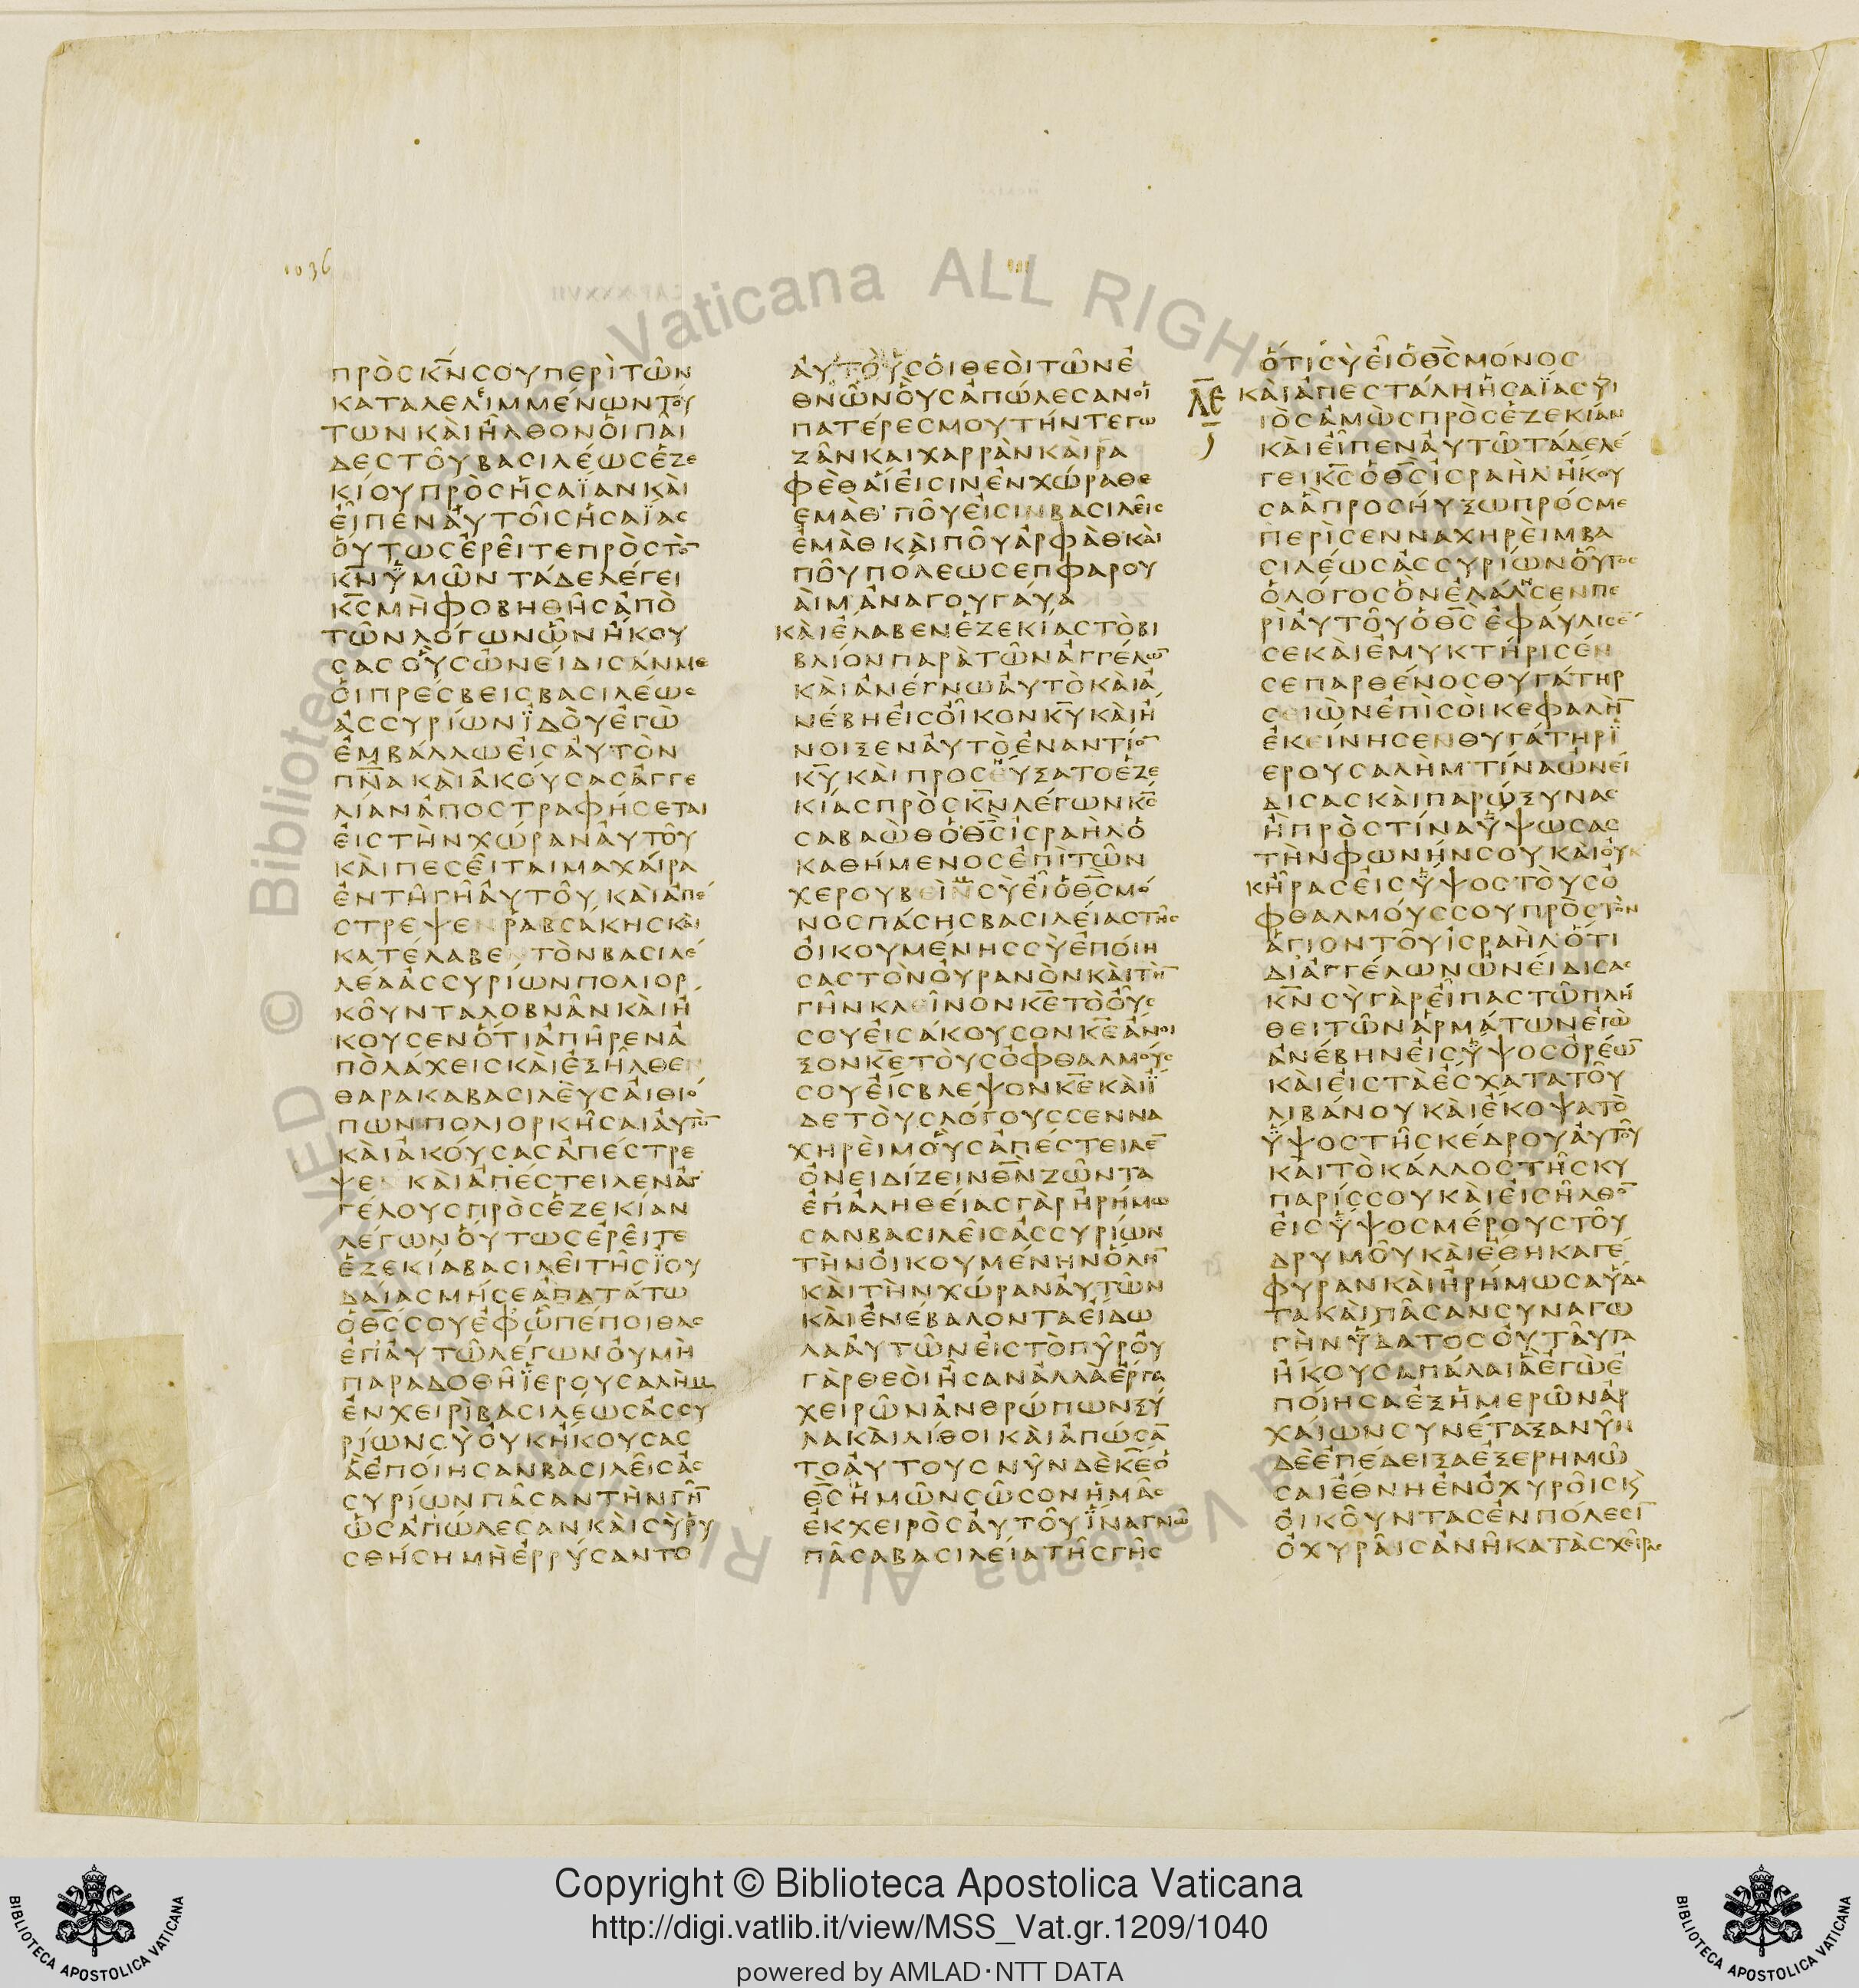 1036
ΠΡῸCΚ̅Ν̅CΟΥΠΕΡῚΤΩ͂Ν
ΚΑΤΑΛΕΛΙΜΜΕΝΩΝΤΟΥ
ΤΩΝΚΑΙΗΛΘΟΝΟΙΠΑΙ
ΔΕCΤΟΥΒΑCΙΛΕΩCΕΖΕ
ΚΙΟΥΠΡΟCΗCΑΪΑΝΚΑΙ
ΕΙΠΕΝΑΥΤΟΙCΗCΑΪΑC
ΟΥΤΩCΕΡΕΙΤΕΠΡΟCΤΟ̅
Κ̅Ν̅ΥΜΩΝΤΑΔΕΛΕΓΕΙ
Κ̅C̅ΜΗΦΟΒΗΘΗCΑΠΟ
ΤΩΝΛΟΓΩΝΩΝΗΚΟΥ
CΑCΟΥCΩΝΕΙΔΙCΑΝΜΕ
ΟΙΠΡΕCΒΕΙCΒΑCΙΛΕΩC
ΑCCΥΡΙΩΝΪΔΟΥΕΓΩ
ΕΜΒΑΛΛΩΕΙCΑΥΤΟΝ
Π̅Ν̅ΑΚΑΙΑΚΟΥCΑCΑΓΓΕ
ΛΙΑΝΑΠΟCΤΡΑΦΗCΕΤΑΙ
ΕΙCΤΗΝΧΩΡΑΝΑΥΤΟΥ
ΚΑΙΠΕCΕΙΤΑΙΜΑΧΑΙΡΑ
ΕΝΤΗΓΗΑΥΤΟΥΚΑΙΑΠΕ
CΤΡΕΨΕΝΡΑΒCΑΚΗCΚΑΙ
ΚΑΤΕΛΑΒΕΝΤΟΝΒΑCΙΛΕ
ΛΕΑΑCCΥΡΙΩΝΠΟΛΙΟΡ
ΚΟΥΝΤΑΛΟΒΝΑΝΚΑΙΗ
ΚΟΥCΕΝΟΤΙΑΠΗΡΕΝΑ
ΠΟΛΑΧΕΙCΚΑΙΕΞΗΛΘΕΝ
ΘΑΡΑΚΑΒΑCΙΛΕΥCΑΙΘΙΟ
ΠΩΝΠΟΛΙΟΡΚΗCΑΙΑΥΤΟ̅
ΚΑΙΑΚΟΥCΑCΑΠΕCΤΡΕ
ΨΕΝΚΑΙΑΠΕCΤΕΙΛΕΝΑΓ
ΓΕΛΟΥCΠΡΟCΕΖΕΚΙΑΝ
ΛΕΓΩΝΟΥΤΩCΕΡΕΙΤΕ
ΕΖΕΚΙΑΒΑCΙΛΕΙΤΗCΪΟΥ
ΔΑΙΑCΜΗCΕΑΠΑΤΑΤΩ
ΟΘ̅C̅CΟΥΕΦΩΠΕΠΟΙΘΑC
ΕΠΑΥΤΩΛΕΓΩΝΟΥΜΗ
ΠΑΡΑΔΟΘΗΪΕΡΟΥCΑΛΗΜ
ΕΝΧΕΙΡΙΒΑCΙΛΕΩCΑCCΥ
ΡΙΩΝCΥΟΥΚΗΚΟΥCΑC
ΑΕΠΟΙΗCΑΝΒΑCΙΛΕΙCΑC
CΥΡΙΩΝΠΑCΑΝΤΗΝΓΗ̅
ΩCΑΠΩΛΕCΑΝΚΑΙCΥΡΥ
CΘΗCΗΜΗΕΡΡΥCΑΝΤΟ
ΑΥΤΟΥCΟΙΘΕΟΙΤΩΝΕ
ΘΝΩΝΟΥCΑΠΩΛΕCΑΝΟΙ
ΠΑΤΕΡΕCΜΟΥΤΗΝΤΕΓΩ
ΖΑΝΚΑΙΧΑΡΡΑΝΚΑΙΡΑ
ΦΕΘΑΙΕΙCΙΝΕΝΧΩΡΑΘΕ
ΕΜΑΘΠΟΥΕΙCΙΝΒΑCΙΛΕΙC
ΕΜΑΘΚΑΙΠΟΥΑΡΦΑΘΚΑΙ
ΠΟΥΠΟΛΕΩCΕΠΦΑΡΟΥ
ΑΙΜΑΝΑΓΟΥΓΑΥΑ
ΚΑΙΕΛΑΒΕΝΕΖΕΚΙΑCΤΟΒΙ
ΒΛΙΟΝΠΑΡΑΤΩΝΑΓΓΕΛΩ̅
ΚΑΙΑΝΕΓΝΩΑΥΤΟΚΑΙΑ
ΝΕΒΗΕΙCΟΙΚΟΝΚ̅Υ̅ΚΑΙΗ
ΝΟΙΞΕΝΑΥΤΟΕΝΑΝΤΙΟ̅
Κ̅Υ̅ΚΑΙΠΡΟCΕΥΞΑΤΟΕΖΕ
ΚΙΑCΠΡΟCΚ̅Ν̅ΛΕΓΩΝΚ̅C̅
CΑΒΑΩΘΟΘ̅C̅ΙCΡΑΗΛΟ
ΚΑΘΗΜΕΝΟCΕΠΙΤΩΝ
ΧΕΡΟΥΒΕΙΝCΥΕΙΟΘ̅C̅ΜΟ
ΝΟCΠΑCΗCΒΑCΙΛΕΙΑCΤΗC
ΟΙΚΟΥΜΕΝΗCCΥΕΠΟΙΗ
CΑCΤΟΝΟΥΡΑΝΟΝΚΑΙΤΗ̅
ΓΗΝΚΛΕΙΝΟΝΚ̅Ε̅ΤΟΟΥC
CΟΥΕΙCΑΚΟΥCΟΝΚ̅Ε̅ΑΝΟΙ
ΞΟΝΚ̅Ε̅ΤΟΥCΟΦΘΑΛΜΟΥC
CΟΥΕΙCΒΛΕΨΟΝΚ̅Ε̅ΚΑΙΪ
ΔΕΤΟΥCΛΟΓΟΥCCΕΝΝΑ
ΧΗΡΕΙΜΟΥCΑΠΕCΤΕΙΛΕ̅
ΟΝΕΙΔΙΖΕΙΝΘ̅Ν̅ΖΩΝΤΑ
ΕΠΑΛΗΘΕΙΑCΓΑΡΗΡΗΜΩ
CΑΝΒΑCΙΛΕΙCΑCCΥΡΙΩΝ
ΤΗΝΟΙΚΟΥΜΕΝΗΝΟΛΗ̅
ΚΑΙΤΗΝΧΩΡΑΝΑΥΤΩΝ
ΚΑΙΕΝΕΒΑΛΟΝΤΑΕΙΔΩ
ΛΑΑΥΤΩΝΕΙCΤΟΠΥΡΟΥ
ΓΑΡΘΕΟΙΗCΑΝΑΛΛΑΕΡΓΑ
ΧΕΙΡΩΝΑΝΘΡΩΠΩΝΞΥ
ΛΑΚΑΙΛΙΘΟΙΚΑΙΑΠΩCΑ̅
ΤΟΑΥΤΟΥCΝΥΝΔΕΚ̅Ε̅Ο
Θ̅C̅ΗΜΩΝCΩCΟΝΗΜΑC
ΕΚΧΕΙΡΟCΑΥΤΟΥΪΝΑΓΝΩ
ΠΑCΑΒΑCΙΛΕΙΑΤΗCΓΗC
ΟΤΙCΥΕΙΟΘ̅C̅ΜΟΝΟC
Λ̅Ε̅ ΚΑΙΑΠΕCΤΑΛΗΗCΑΪΑCΥΙ
ΙΟCΑΜΩCΠΡΟCΕΖΕΚΙΑΝ
ΚΑΙΕΙΠΕΝΑΥΤΩΤΑΔΕΛΕ
ΓΕΙΚ̅C̅ΟΘ̅C̅ΙCΡΑΗΛΗΚΟΥ
CΑΑΠΡΟCΗΥΞΩΠΡΟCΜΕ
ΠΕΡΙCΕΝΝΑΧΗΡΕΙΜΒΑ
CΙΛΕΩCΑCCΥΡΙΩΝΟΥΤΟC
ΟΛΟΓΟCΟΝΕΛΑΛΗCΕΝΠΕ
ΡΙΑΥΤΟΥΟΘ̅C̅ΕΦΑΥΛΙCΕ
CΕΚΑΙΕΜΥΚΤΗΡΙCΕΝ
CΕΠΑΡΘΕΝΟCΘΥΓΑΤΗΡ
CΕΙΩΝΕΠΙCΟΙΚΕΦΑΛΗ̅
ΕΚΕΙΝΗCΕΝΘΥΓΑΤΗΡΪ
ΕΡΟΥCΑΛΗΜΤΙΝΑΩΝΕΙ
ΔΙCΑCΚΑΙΠΑΡΩΞΥΝΑC
ΗΠΡΟCΤΙΝΑΥΨΩCΑC
ΤΗΝΦΩΝΗΝCΟΥΚΑΙΟΥΚ
ΚΗΡΑCΕΙCΥΨΟCΤΟΥCΟ
ΦΘΑΛΜΟΥCCΟΥΠΡΟCΤΟΝ
ΑΓΙΟΝΤΟΥΙCΡΑΗΛΟΤΙ
ΔΙΑΓΓΕΛΩΝΩΝΕΙΔΙCΑC
Κ̅Ν̅CΥΓΑΡΕΙΠΑCΤΩΠΛΗ
ΘΕΙΤΩΝΑΡΜΑΤΩΝΕΓΩ
ΑΝΕΒΗΝΕΙCΥΨΟCΟΡΕΩ̅
ΚΑΙΕΙCΤΑΕCΧΑΤΑΤΟΥ
ΛΙΒΑΝΟΥΚΑΙΕΚΟΨΑΤΟ
ΥΨΟCΤΗCΚΕΔΡΟΥΑΥΤΟΥ
ΚΑΙΤΟΚΑΛΛΟCΤΗCΚΥ
ΠΑΡΙCCΟΥΚΑΙΕΙCΗΛΘΟ̅
ΕΙCΥΨΟCΜΕΡΟΥCΤΟΥ
ΔΡΥΜΟΥΚΑΙΕΘΗΚΑΓΕ
ΦΥΡΑΝΚΑΙΗΡΗΜΩCΑΥΔΑ
ΤΑΚΑΙΠΑCΑΝCΥΝΑΓΩ
ΓΗΝΥΔΑΤΟCΟΥΤΑΥΤΑ
ΗΚΟΥCΑΠΑΛΑΙΑΕΓΩΕ
ΠΟΙΗCΑΕΞΗΜΕΡΩΝΑΡ
ΧΑΙΩΝCΥΝΕΤΑΞΑΝΥΝ
ΔΕΕΠΕΔΕΙΞΑΕΞΕΡΗΜΩ
CΑΙΕΘΝΗΕΝΟΧΥΡΟΙCΚ
ΟΙΚΟΥΝΤΑCΕΝΠΟΛΕCΙ̅
ΟΧΥΡΑΙCΑΝΗΚΑΤΑCΧΕΙΡΑC
© Biblioteca Apostolica Vaticana ALL RIGHTS RESERVED
Copyright © Biblioteca Apostolica Vaticana
http://digi.vatlib.it/view/MSS_Vat.gr.1209/1040
powered by AMLAD·NTT DATA
BIBLIOTECA APOSTOLICA VATICANA
BIBLIOTECA APOSTOLICA VATICANA